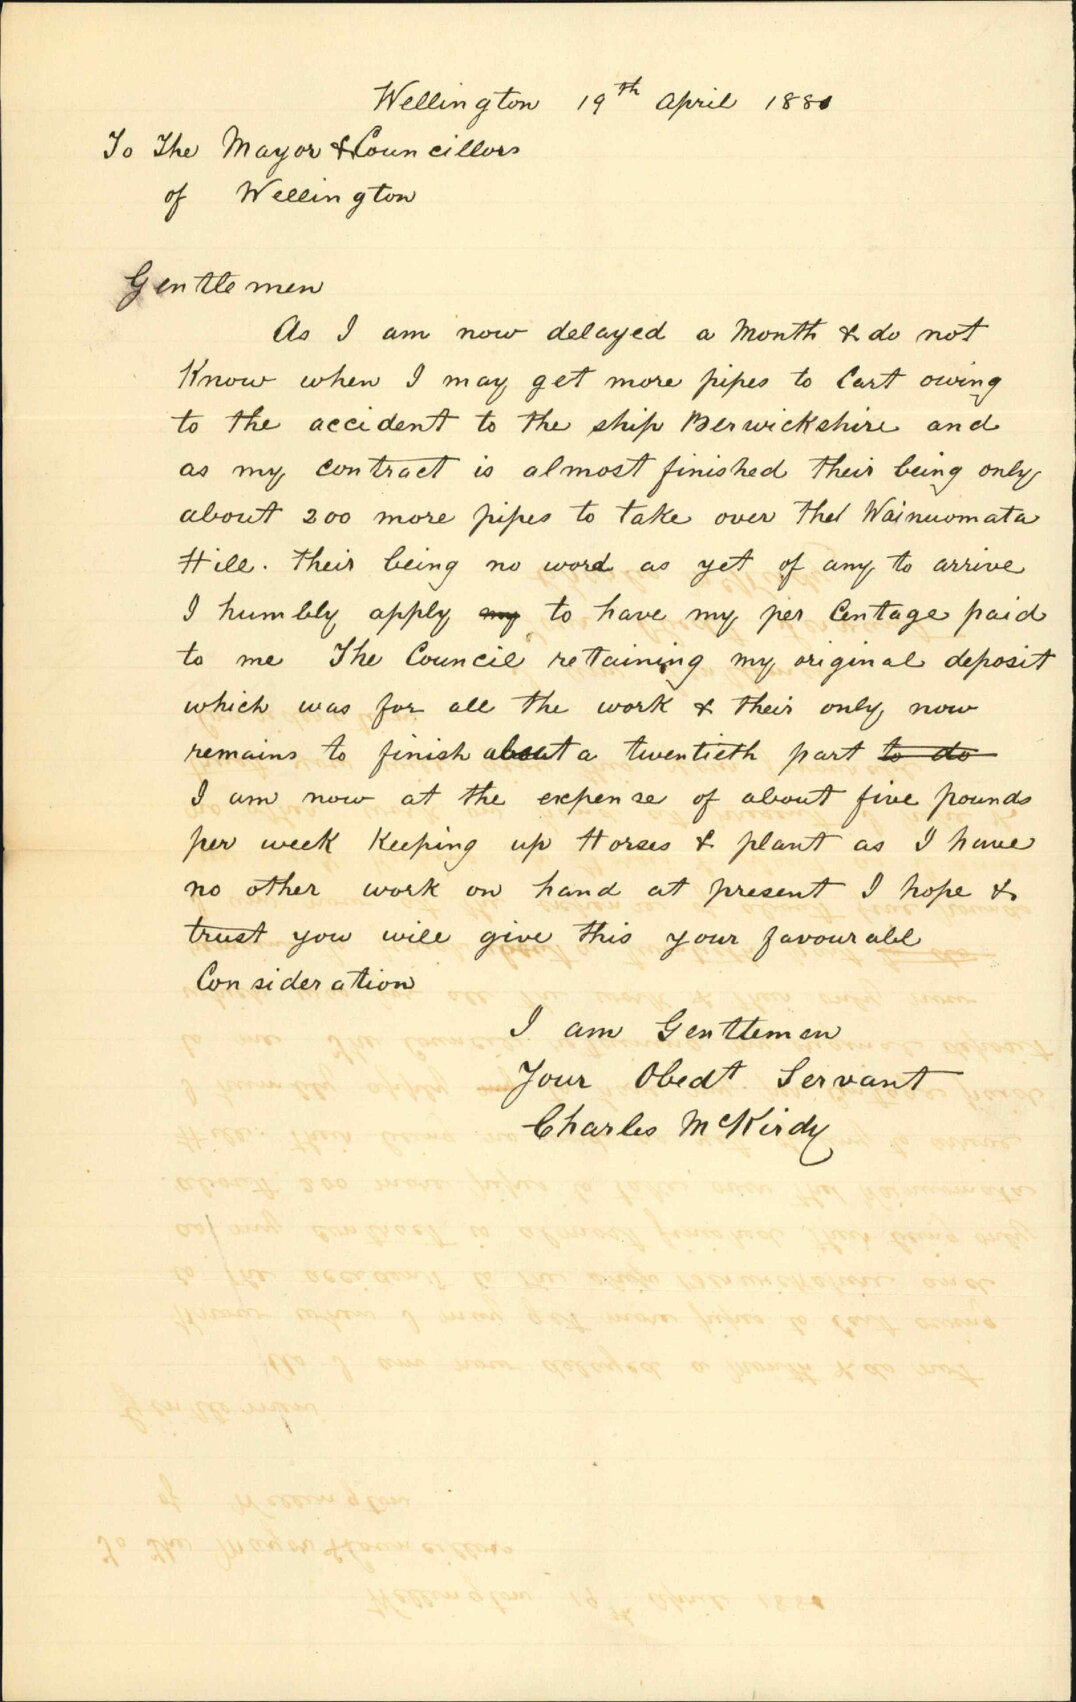 Wellington 19th April 1881
To The Mayor & Councillors
of Wellington
Gentlemen
As I am now delayed a Month & do not
Know when I may get more pipes to Cart owing
to the accident to the ship Berwickshire and
as my contract is almost finished their being only
about 200 more pipes to take over the Wainuomata
Hill. their being no word as yet of any to arrive
I humbly apply my to have my per Centage paid
to me The Council retaining my original deposit
which was for all the work & their only now
remains to finish about a twentieth part to do
I am now at the expense of about five pounds
per week Keeping up Horses & plant as I have
no other work on hand at present I hope &
trust you will give this your favourabl
Consideration
I am Gentlemen
Your Obedt Servant
Charles McKirdy